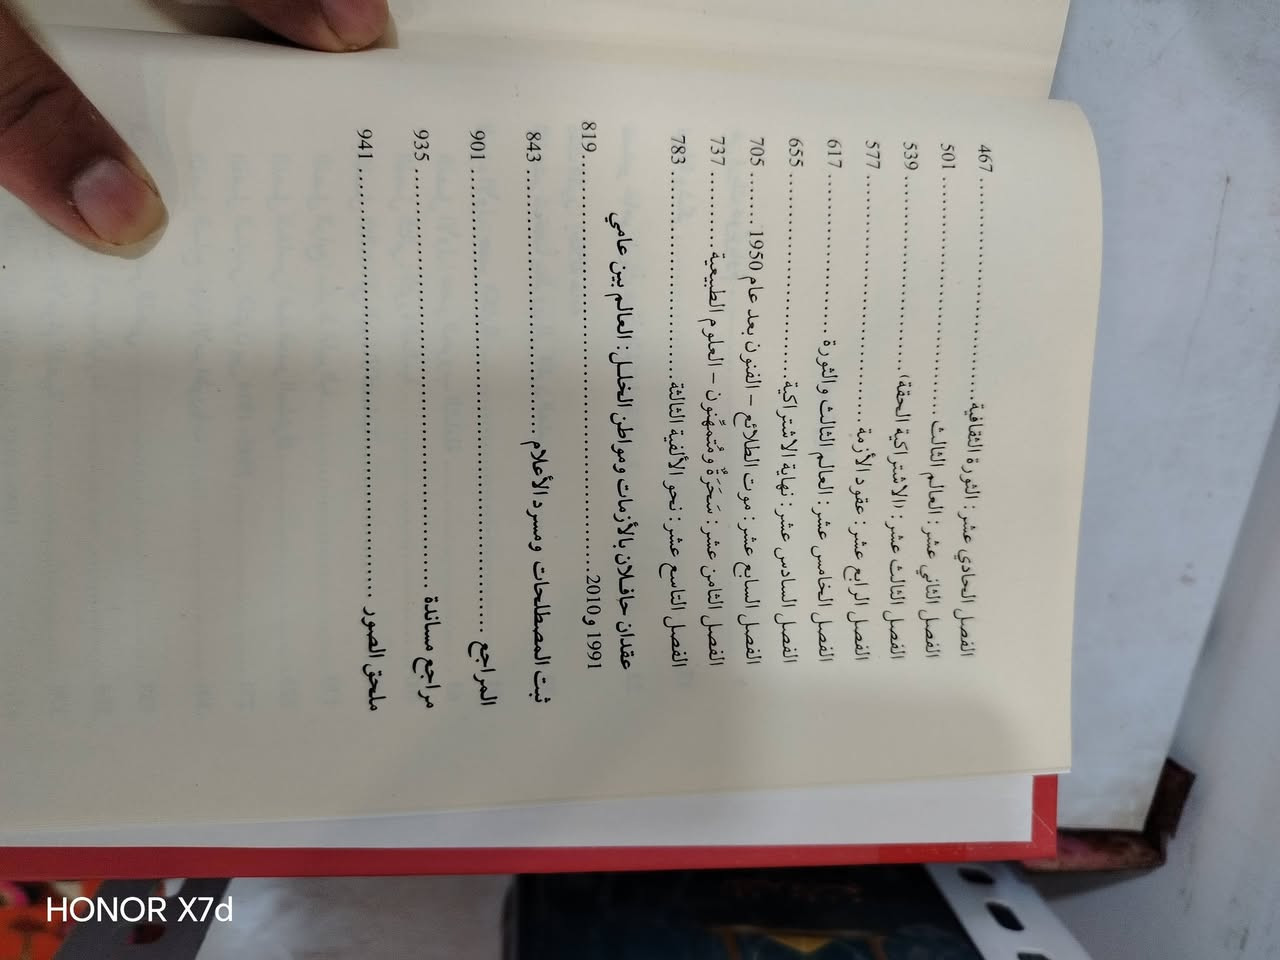 الفصل الحادي عشر: الثورة الثقافية ........ 467
الفصل الثاني عشر: العالم الثالث ........ 501
الفصل الثالث عشر: ((الاشتراكية الحقة)) ........ 539
الفصل الرابع عشر: عقود الأزمة ........ 577
الفصل الخامس عشر: العالم الثالث والثورة ........ 617
الفصل السادس عشر: نهاية الاشتراكية ........ 655
الفصل السابع عشر: موت الطلائع – الفنون بعد عام 1950 ........ 705
الفصل الثامن عشر: سَحَرَةٌ ومُتمهِّنون – العلوم الطبيعية ........ 737
الفصل التاسع عشر: نحو الألفية الثالثة ........ 783
عقدان حافلان بالأزمات ومواطن الخلل: العالم بين عامي
1991 و2010 ........ 819
ثبت المصطلحات ومسرد الأعلام ........ 843
المراجع ........ 901
مراجع مساندة ........ 935
ملحق الصور ........ 941
HONOR X7d